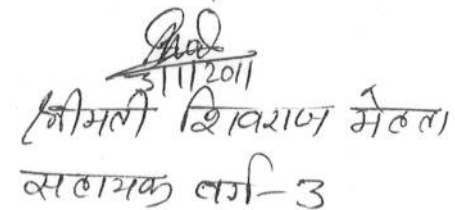 3/11/2011
श्रीमती शिवराज मेहता
सहायक वर्ग-3